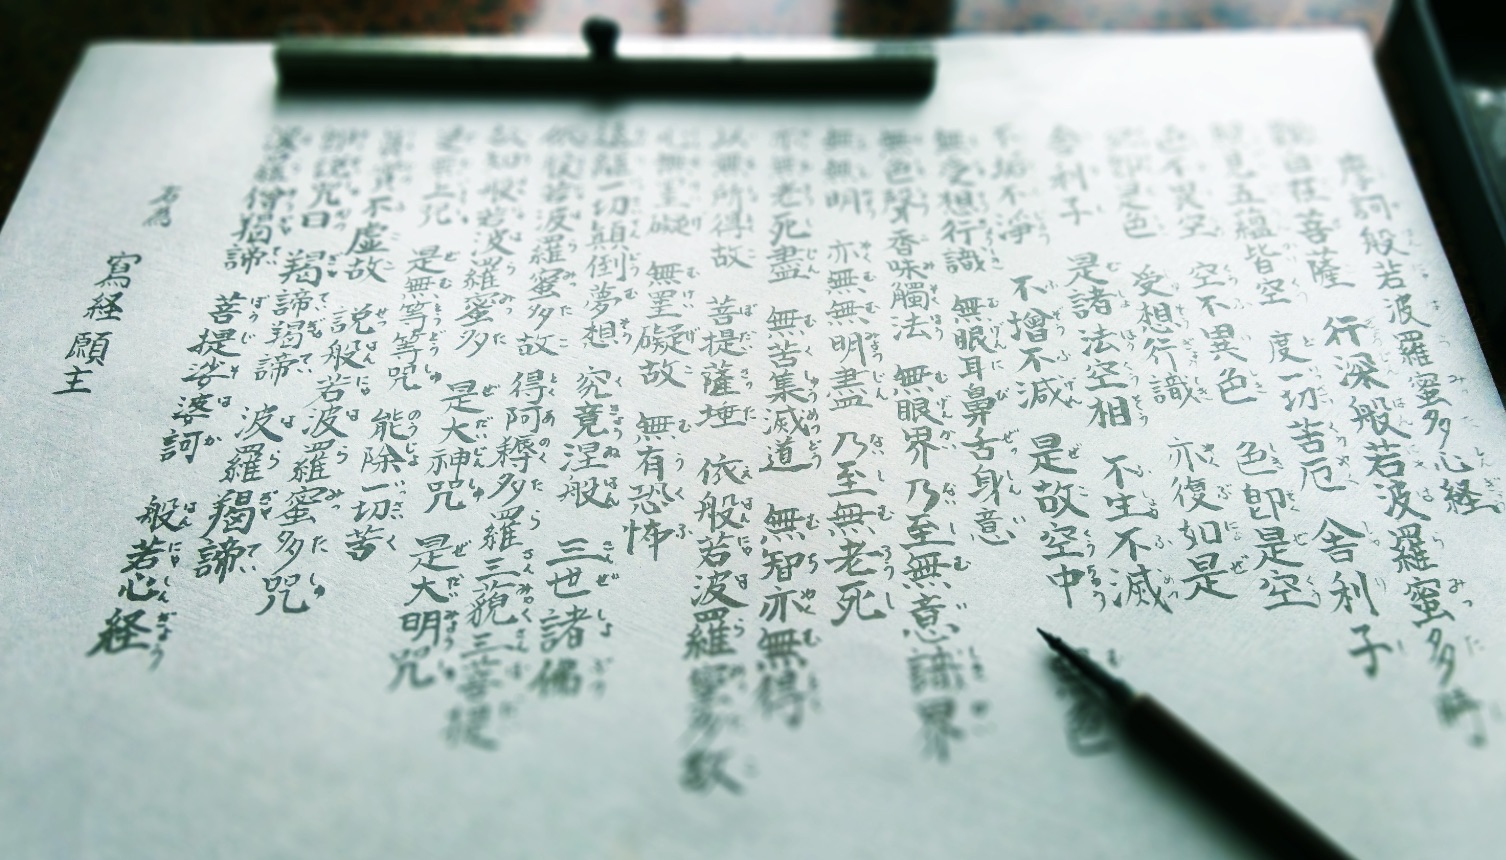 摩訶般若波羅蜜多心経
觀自在菩薩 行深般若波羅蜜多時
照見五蘊皆空 度一切苦厄 舎利子
色不異空 空不異色 色即是空
空即是色 受想行識 亦復如是
舎利子 是諸法空相 不生不滅
不垢不浄 不増不減 是故空中 無色
無受想行識 無眼耳鼻舌身意
無色聲香味觸法 無眼界 乃至無意識界
無無明 亦無無明盡 乃至無老死
亦無老死盡 無苦集滅道 無智亦無得
以無所得故 菩提薩埵 依般若波羅蜜多故
心無罣礙 無罣礙故 無有恐怖
遠離一切顛倒夢想 究竟涅般 三世諸佛
依般若波羅蜜多故 得阿耨多羅三藐三菩提
故知般若波羅蜜多 是大神咒 是大明咒
是無上咒 是無等等咒 能除一切苦
真實不虚故 説般若波羅蜜多咒
即説咒曰 羯諦羯諦 波羅羯諦
波羅僧羯諦 菩提娑婆訶 般若心経
右為 寫経 願主